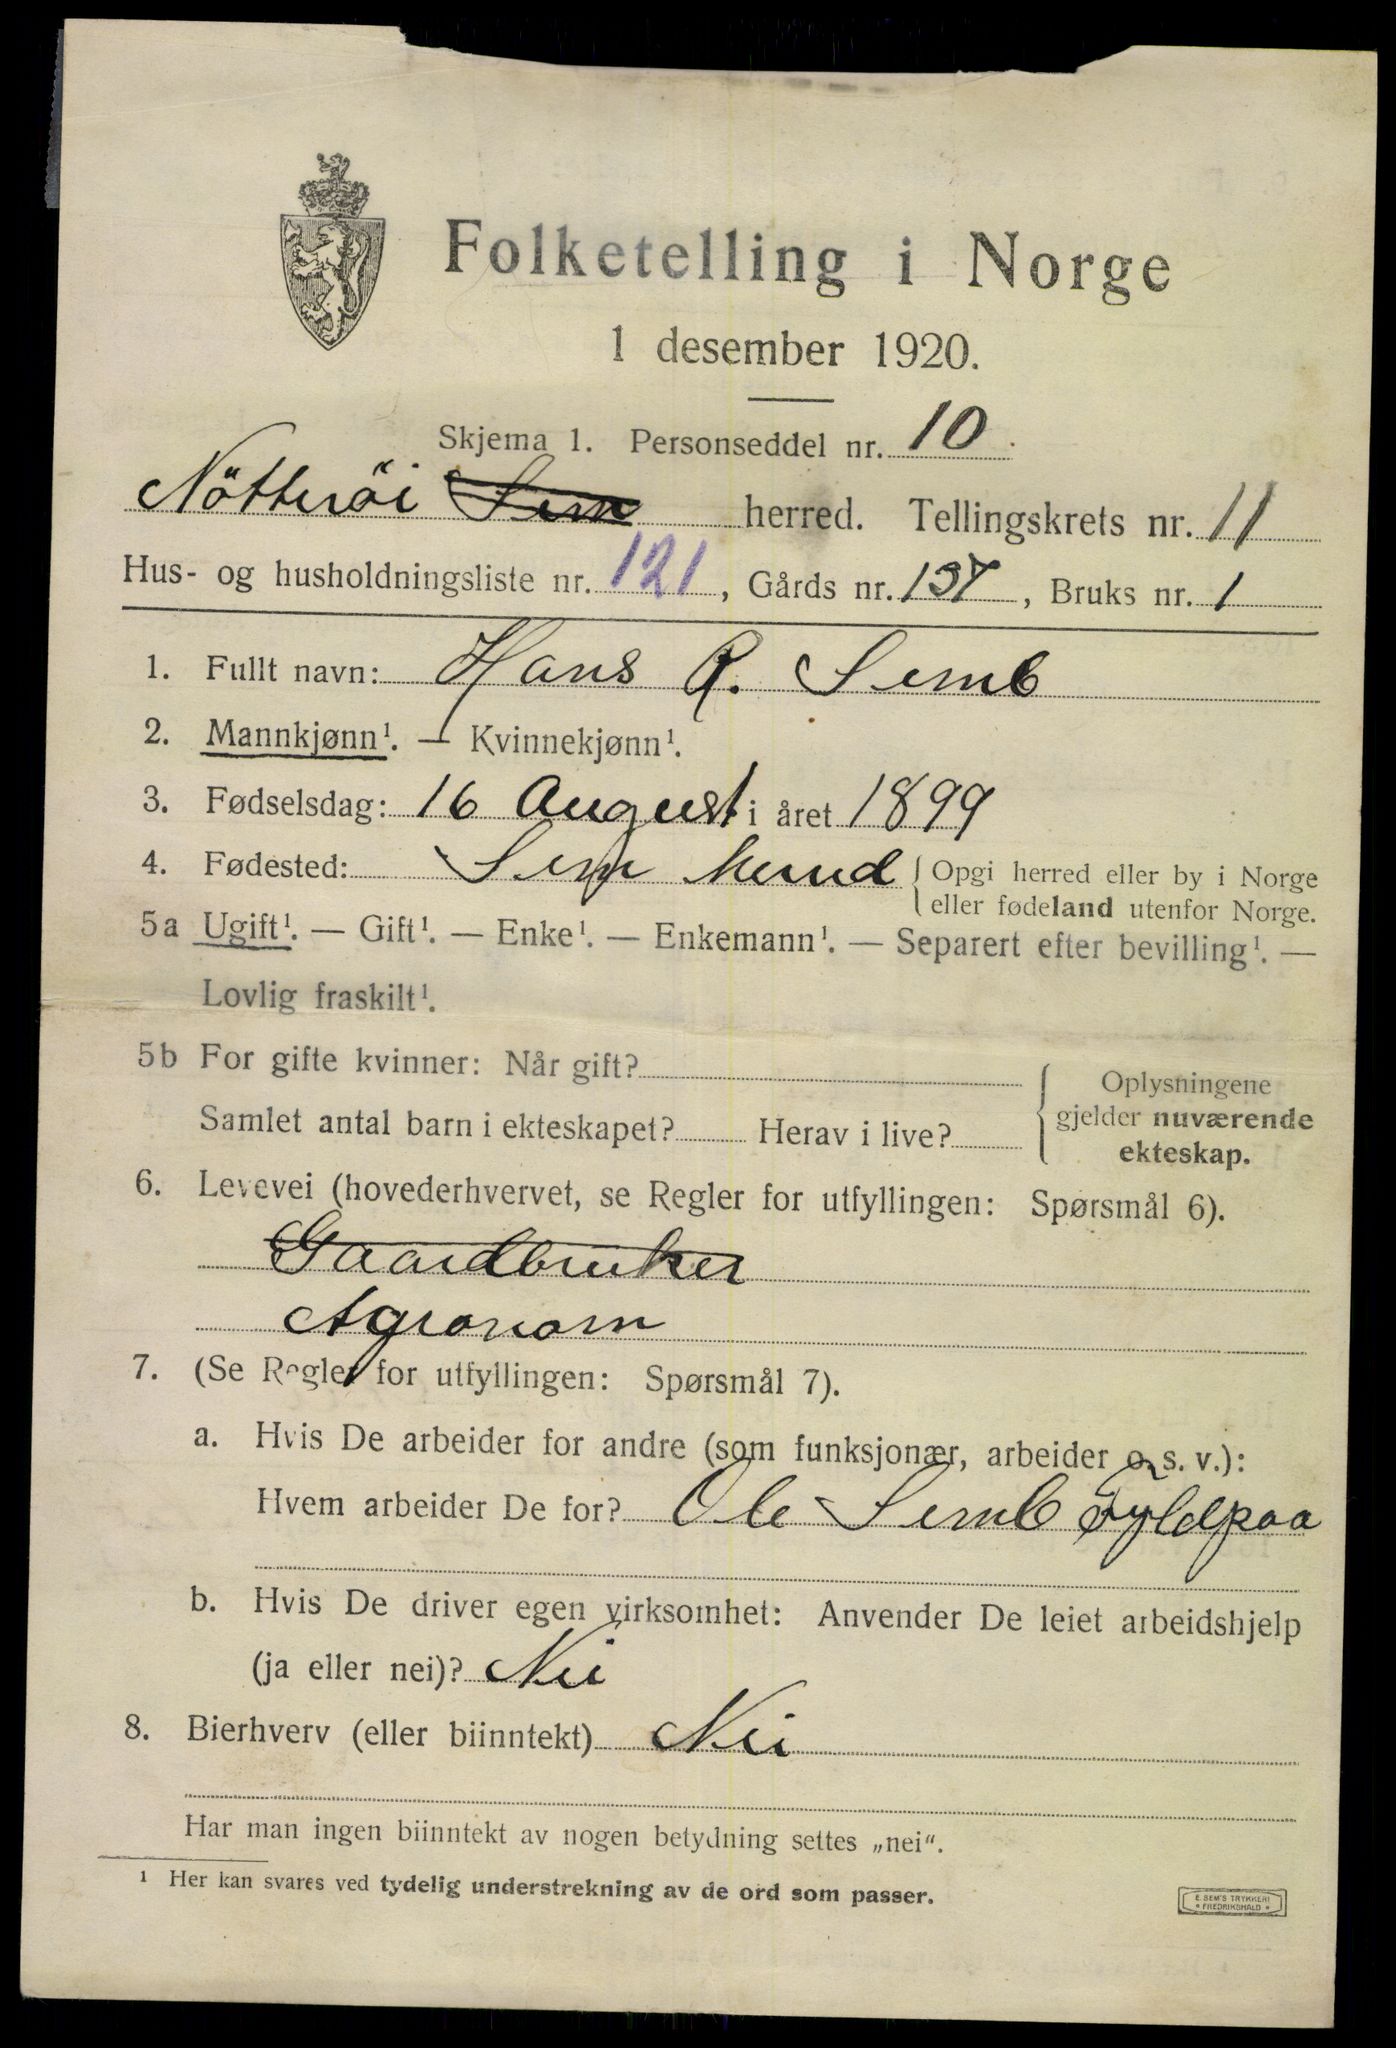 Folketelling i Norge
1 desember 1920.
Skjema 1. Personseddel nr. 10
Nötteröi Sem herred. Tellingskrets nr. 11
Hus- og husholdningsliste nr. 121, Gårds nr. 137, Bruks nr. 1
1. Fullt navn: Hans R. Semb
2. Mannkjønn¹. — Kvinnekjønn¹.
3. Fødselsdag: 16 August i året 1899
4. Fødested: Sem herred { Opgi herred eller by i Norge
eller fødeland utenfor Norge.
5a Ugift¹. — Gift¹. — Enke¹. — Enkemann¹. — Separert efter bevilling¹. —
Lovlig fraskilt¹.
5b For gifte kvinner: Når gift?
Samlet antal barn i ekteskapet? Herav i live?
{ Oplysningene
gjelder nuværende
ekteskap.
6. Levevei (hovederhvervet, se Regler for utfyllingen: Spørsmål 6).
Gaardbruker
Agronom
7. (Se Regler for utfyllingen: Spørsmål 7).
a. Hvis De arbeider for andre (som funksjonær, arbeider o. s. v.):
Hvem arbeider De for? Ole Semb Fyldpaa
b. Hvis De driver egen virksomhet: Anvender De leiet arbeidshjelp
(ja eller nei)? Nei
8. Bierhverv (eller biinntekt) Nei
Har man ingen biinntekt av nogen betydning settes „nei".
¹ Her kan svares ved tydelig understrekning av de ord som passer.
E. SEM'S TRYKKERI
* FREDRIKSHALD *